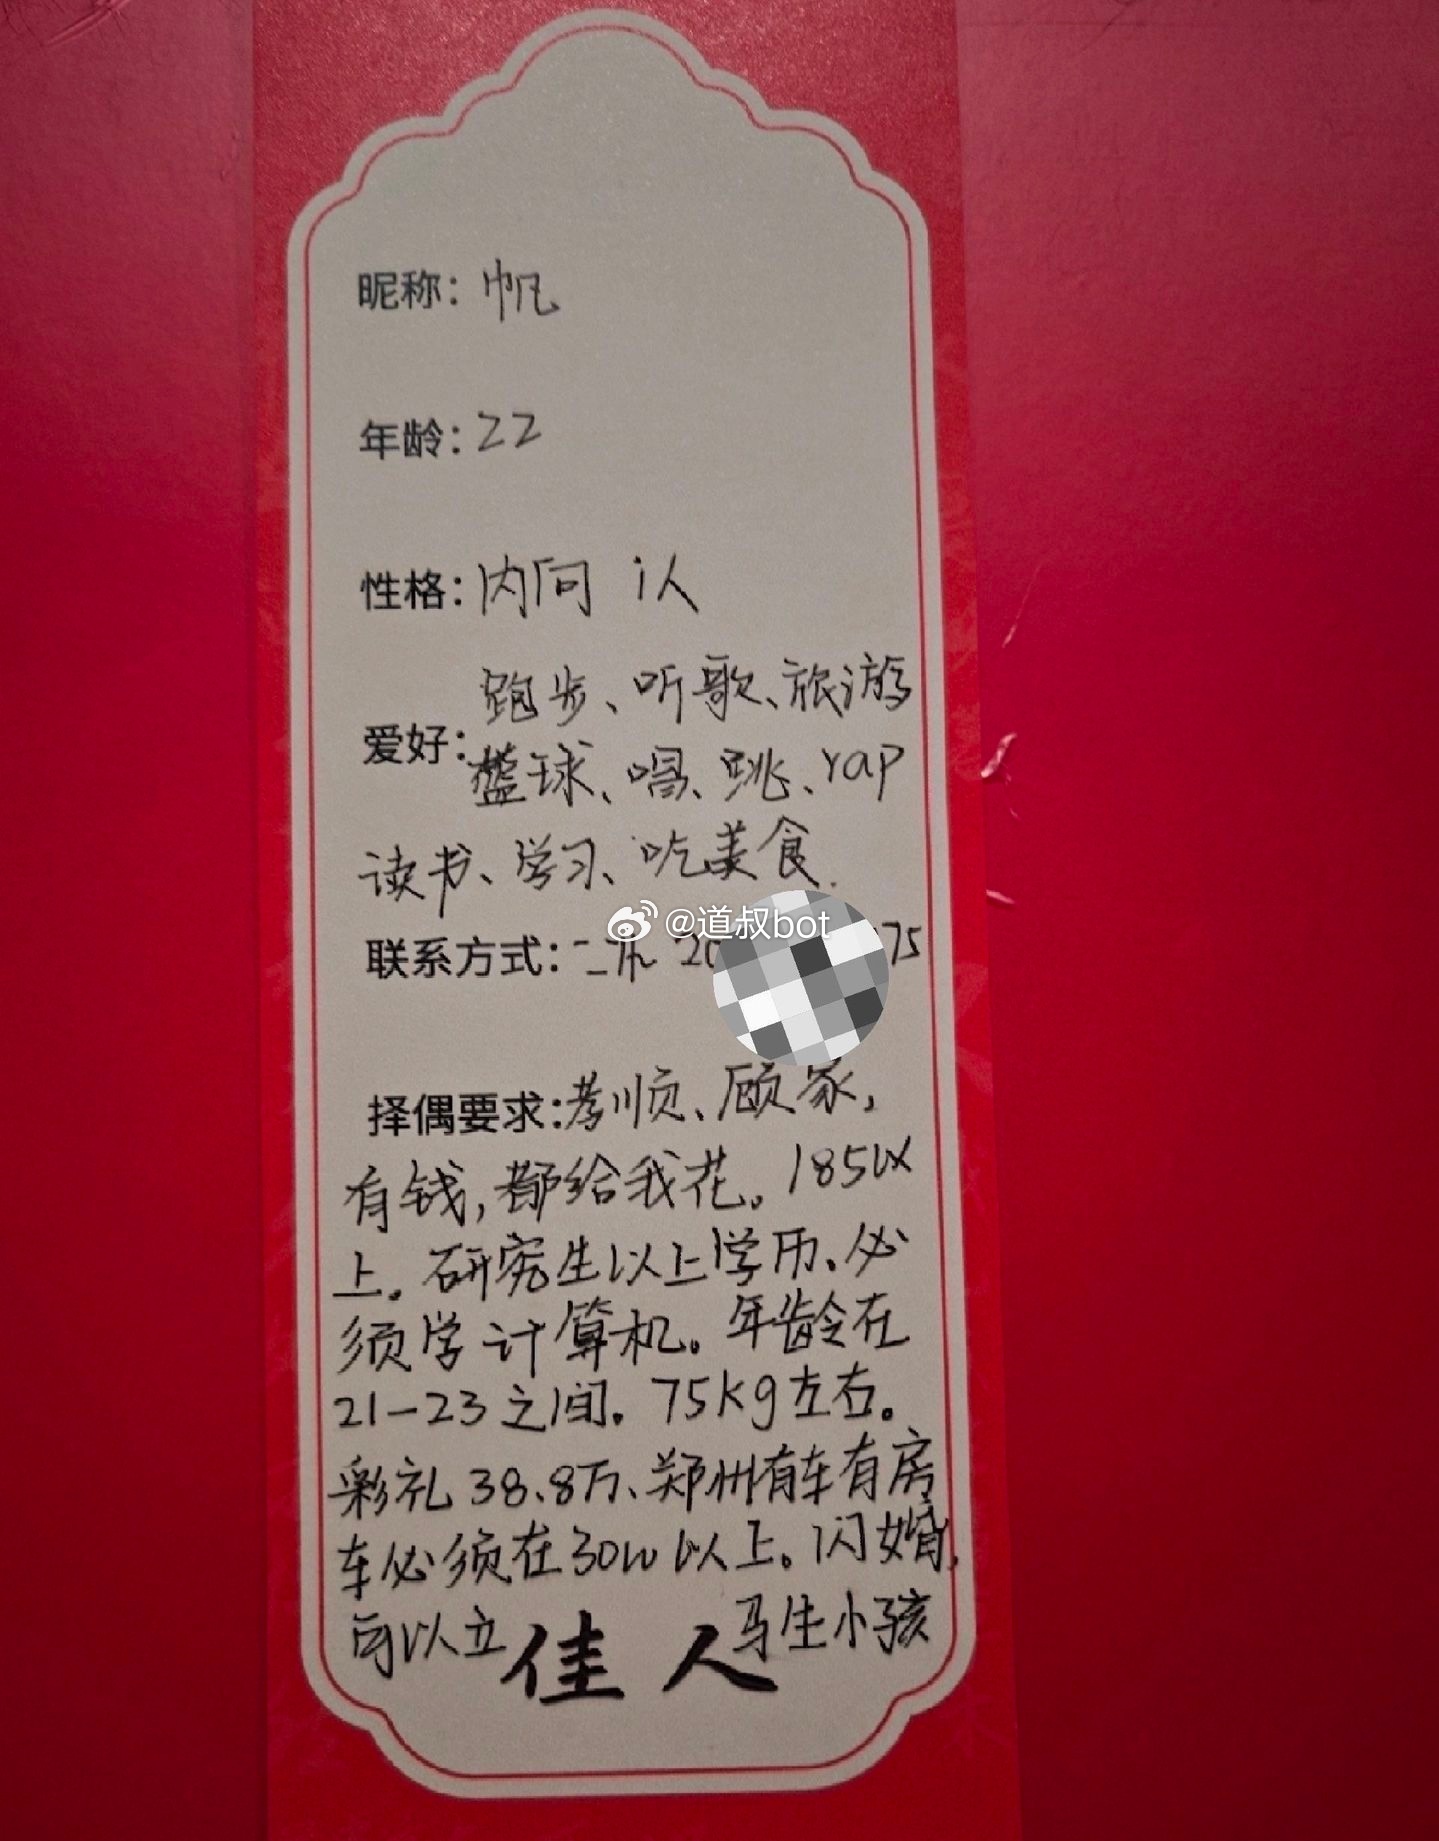 昵称：帆
年龄：22
性格：内向 i人
跑步、听歌、旅游
爱好：
篮球、唱、跳、rap
读书、学习、吃美食.
@道叔bot
联系方式： 20 75
择偶要求：孝顺、顾家，
有钱，都给我花。185以
上。研究生以上学历、必
须学计算机。年龄在
21-23之间。75kg左右。
彩礼38.8万、郑州有车有房
车必须在30w以上。闪婚，
可以立 佳人 马生小孩